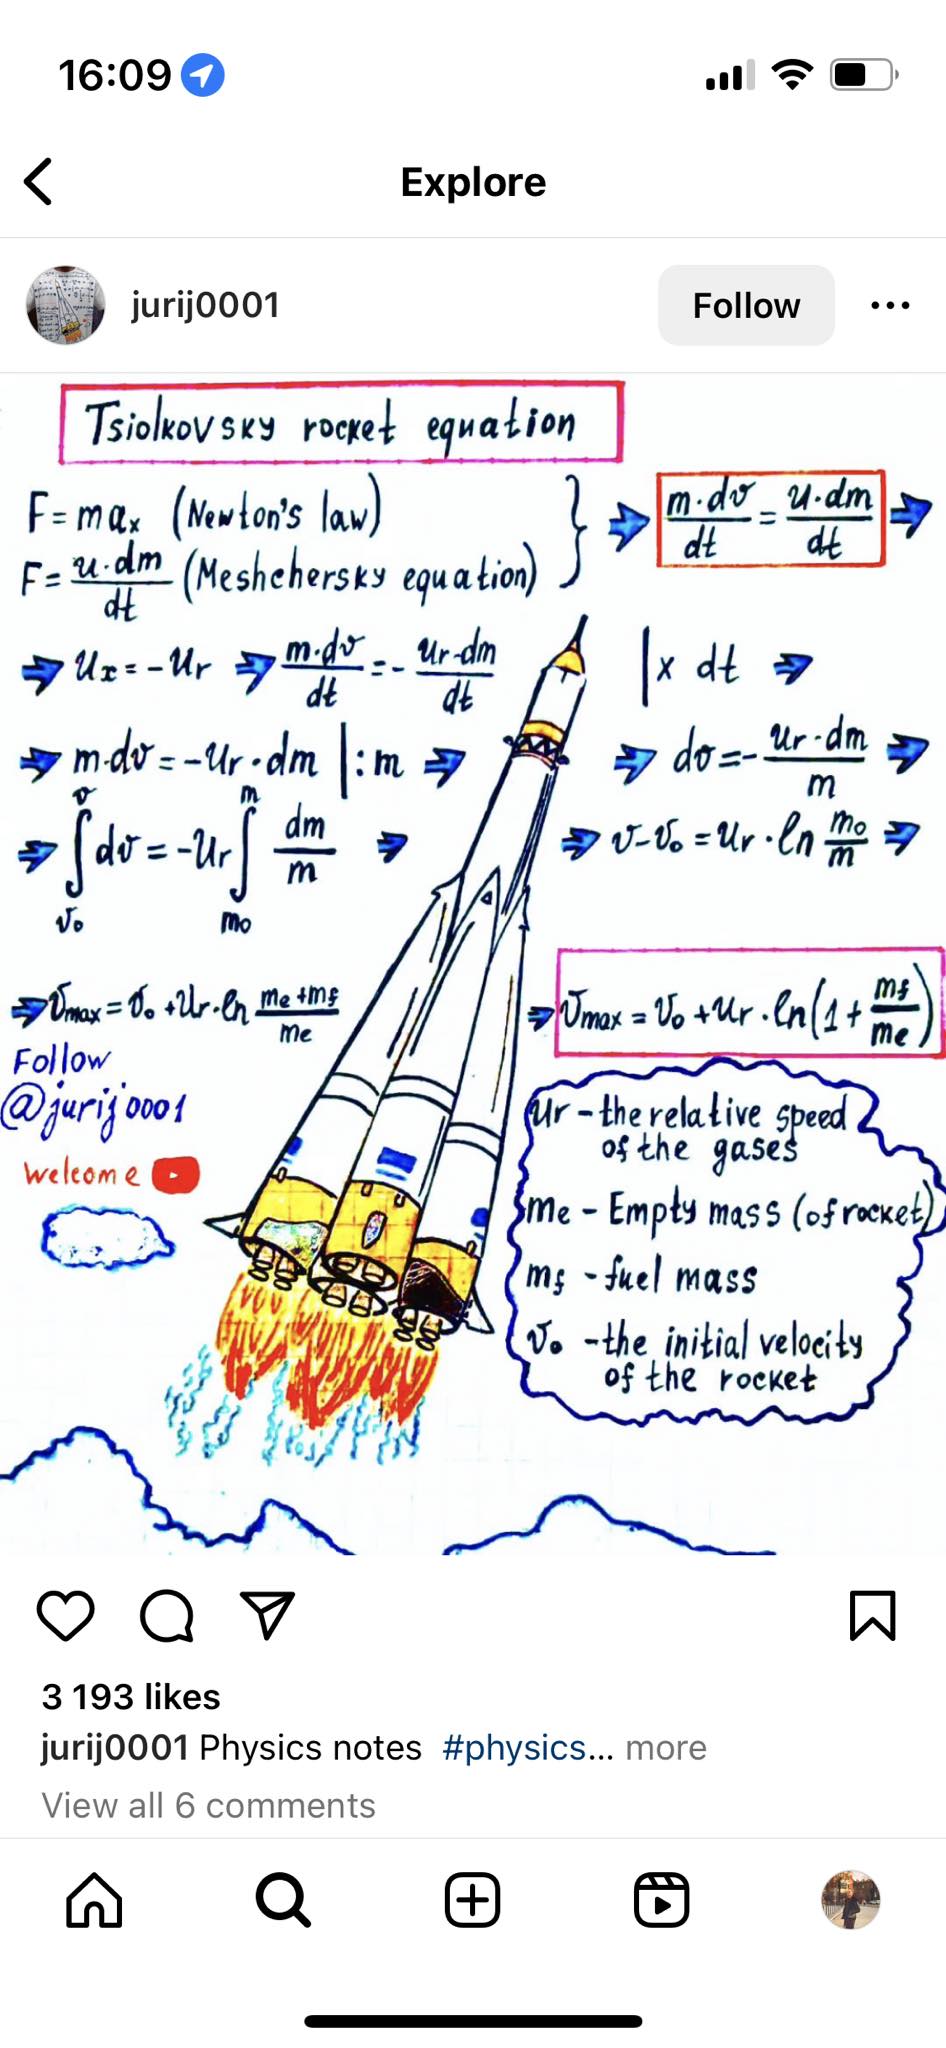 16:09
Explore
jurij0001
Follow
Tsiolkovsky rocket equation
F = max (Newton's law)
F = u·dm/dt (Meshchersky equation)
} ➡ m·dv/dt = u·dm/dt ➡
➡ ux = -ur ➡ m·dv/dt = - ur·dm/dt | x dt ➡
➡ m·dv = -ur·dm |:m ➡ dv = - ur·dm/m ➡
➡ ∫v₀^v dv = -ur ∫m₀^m dm/m ➡ v-v₀ = ur·ln m₀/m ➡
➡ vmax = v₀ + ur·ln me+mf/me ➡ vmax = v₀ + ur·ln(1 + mf/me)
Follow
@jurij0001
welcome
ur - the relative speed
of the gases
me - Empty mass (of rocket)
mf - fuel mass
v₀ - the initial velocity
of the rocket
3 193 likes
jurij0001 Physics notes #physics... more
View all 6 comments